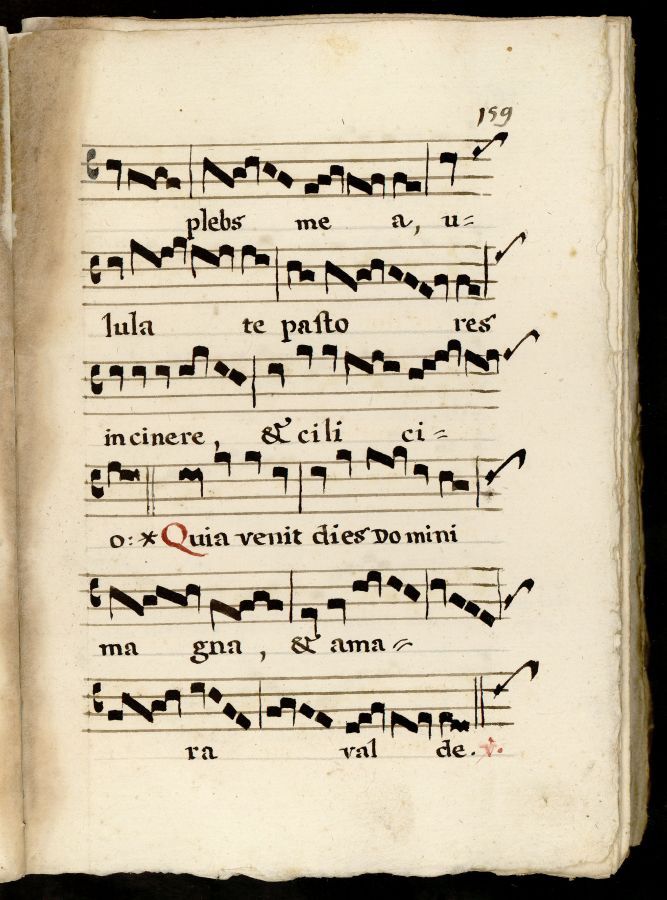 159
plebs me a, u=
lula te pasto res
in cinere, & cili ci=
o: * Quia venit dies Domini
ma gna, & ama=
ra val de. ℣.